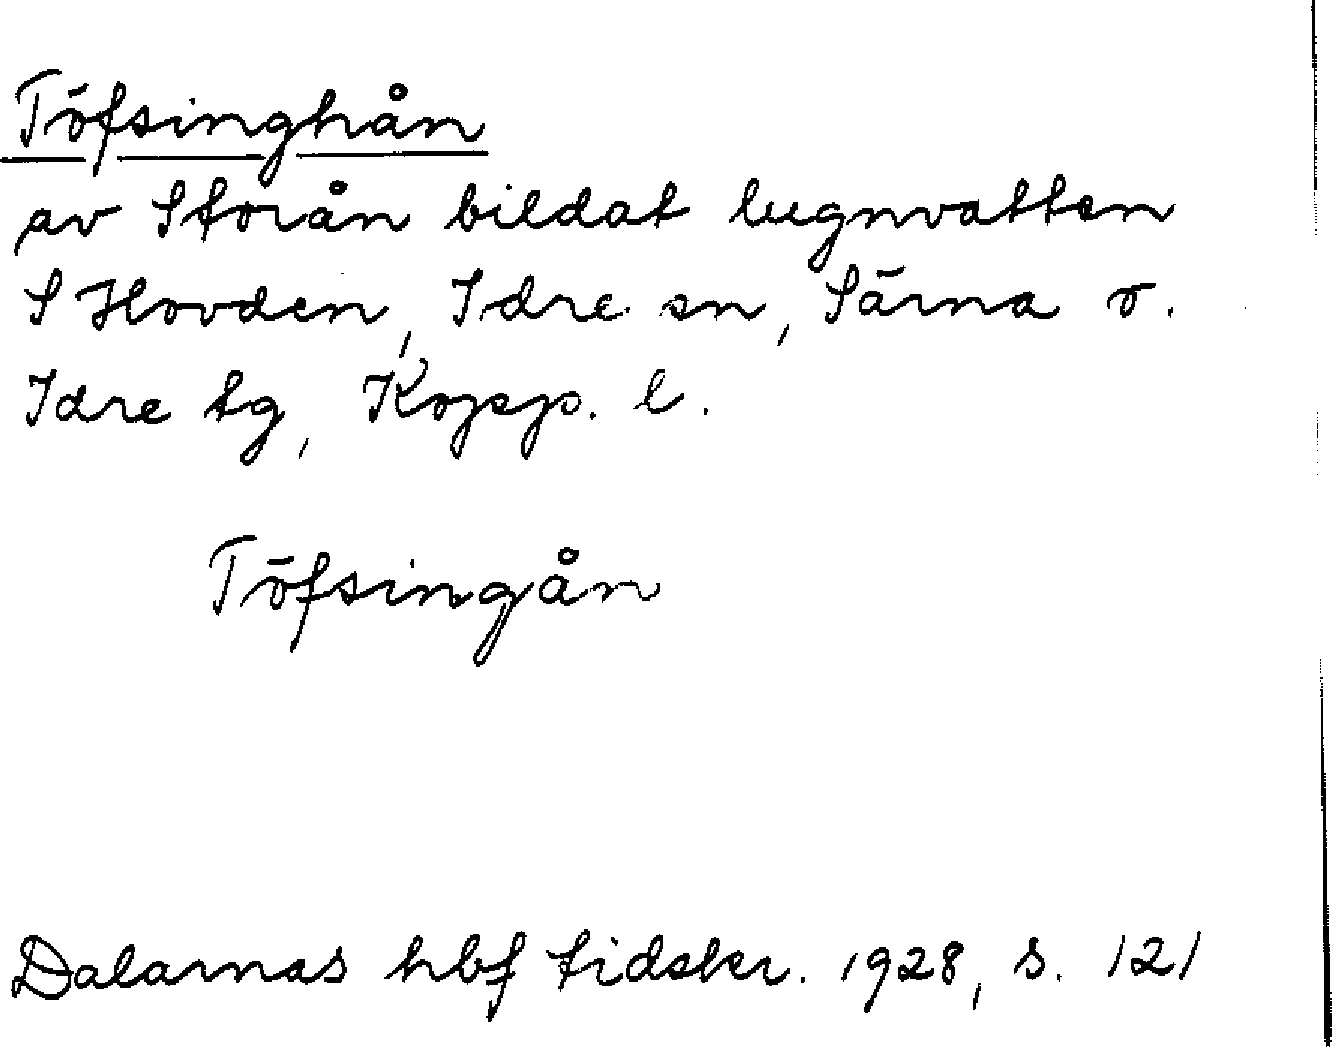 Töfsinghån
av Storån bildat lugnvatten
S Hovden, Idre sn, Särna o.
Idre tg, Kopp. l.
Töfsingån
Dalarnas hbf tidskr. 1928, s. 121